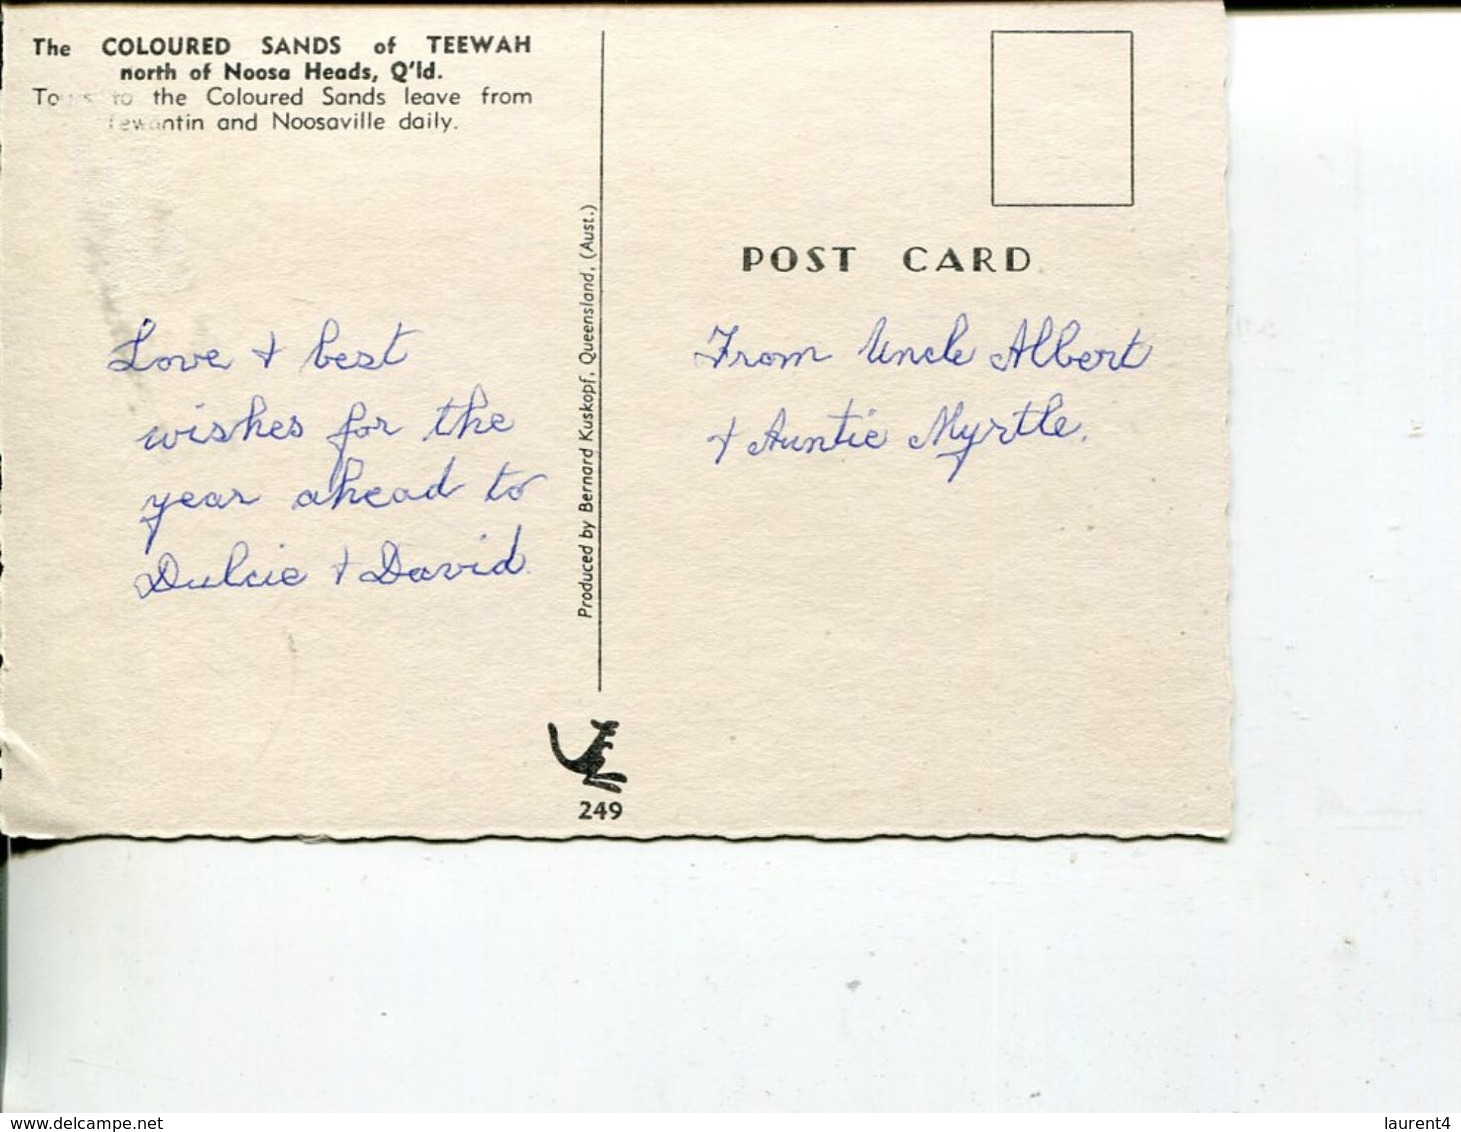 The COLOURED SANDS of TEEWAH
north of Noosa Heads, Q'ld.
Tours to the Coloured Sands leave from
Tewantin and Noosaville daily.
Love + best
wishes for the
year ahead to
Dulcie + David.
Produced by Bernard Kuskopf, Queensland, (Aust.)
249
POST CARD
From Uncle Albert
+ Auntie Myrtle.
www.delcampe.net
laurent4